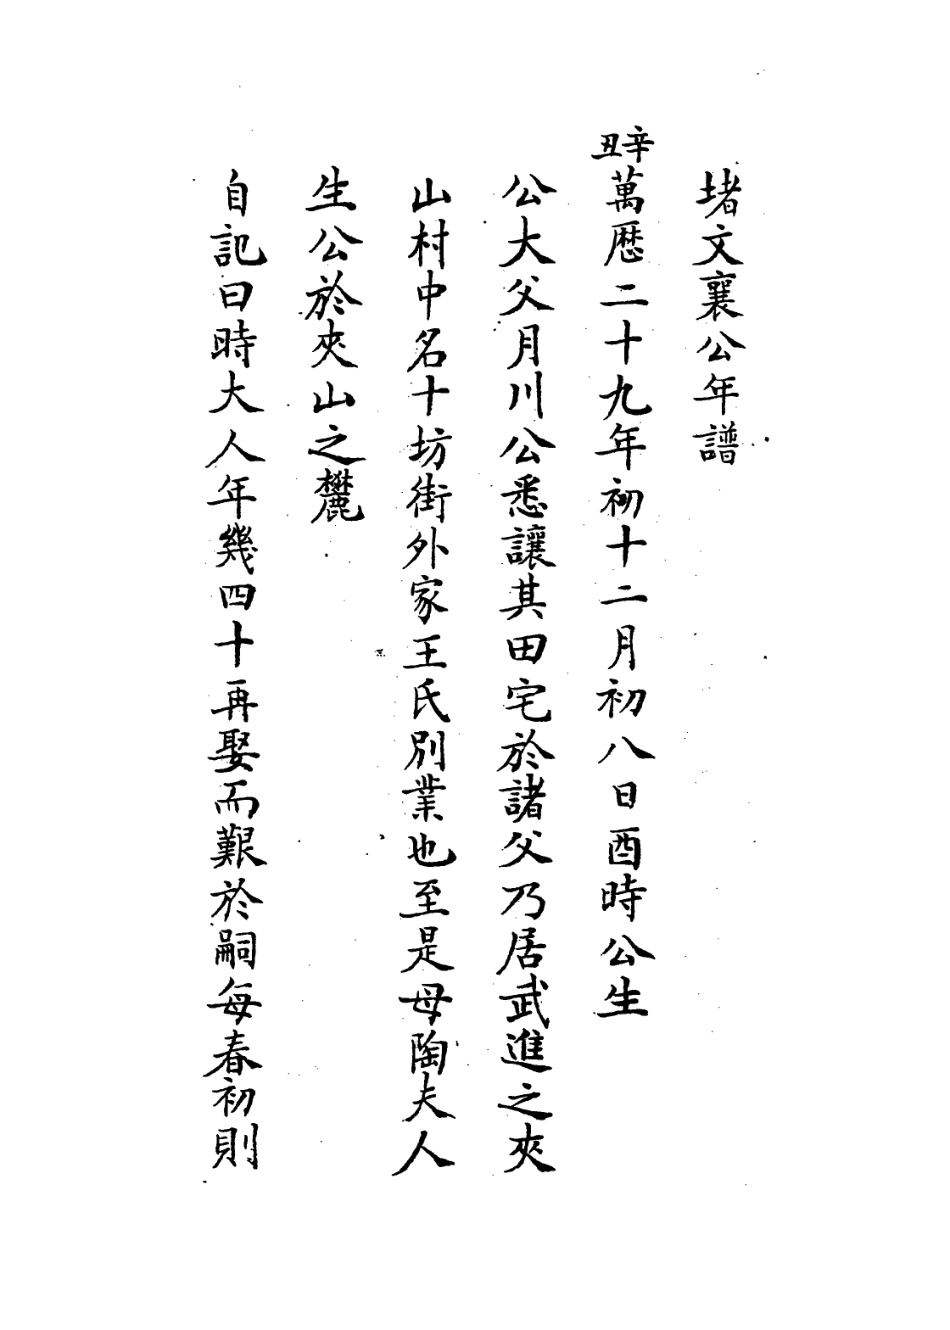 堵文襄公年譜
辛丑萬厯二十九年初十二月初八日酉時公生
公大父月川公悉讓其田宅於諸父乃居武進之夾
山村中名十坊街外家王氏別業也至是母陶夫人
生公於夾山之麓
自記曰時大人年幾四十再娶而艱於嗣每春初則